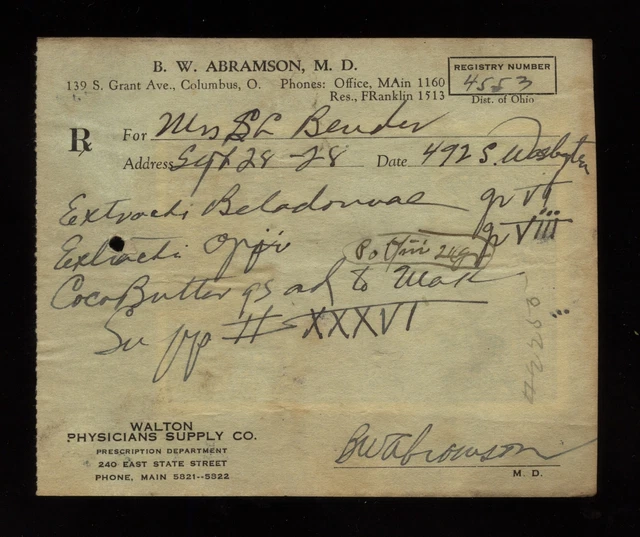 B. W. ABRAMSON, M. D.
139 S. Grant Ave., Columbus, O. Phones: Office, MAin 1160
Res., FRanklin 1513
REGISTRY NUMBER
4553
Dist. of Ohio
℞ For Mrs Bender
Address Sept 28-28 Date 492 S. Washington
Extracti Beladonnae gr VI
Extracti Opii gr VIII
Coco Butter qs ad to Mak
Supp # XXXVI
WALTON
PHYSICIANS SUPPLY CO.
PRESCRIPTION DEPARTMENT
240 EAST STATE STREET
PHONE, MAIN 5821--5822
BWAbramson
M. D.